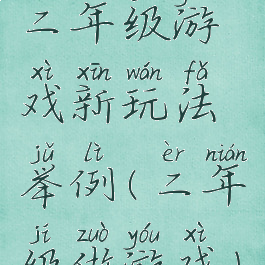 二年级游
xì xīn wán fǎ
戏新玩法
jǔ lì èr nián
举例(二年
jí zuò yóu xì
级做游戏)